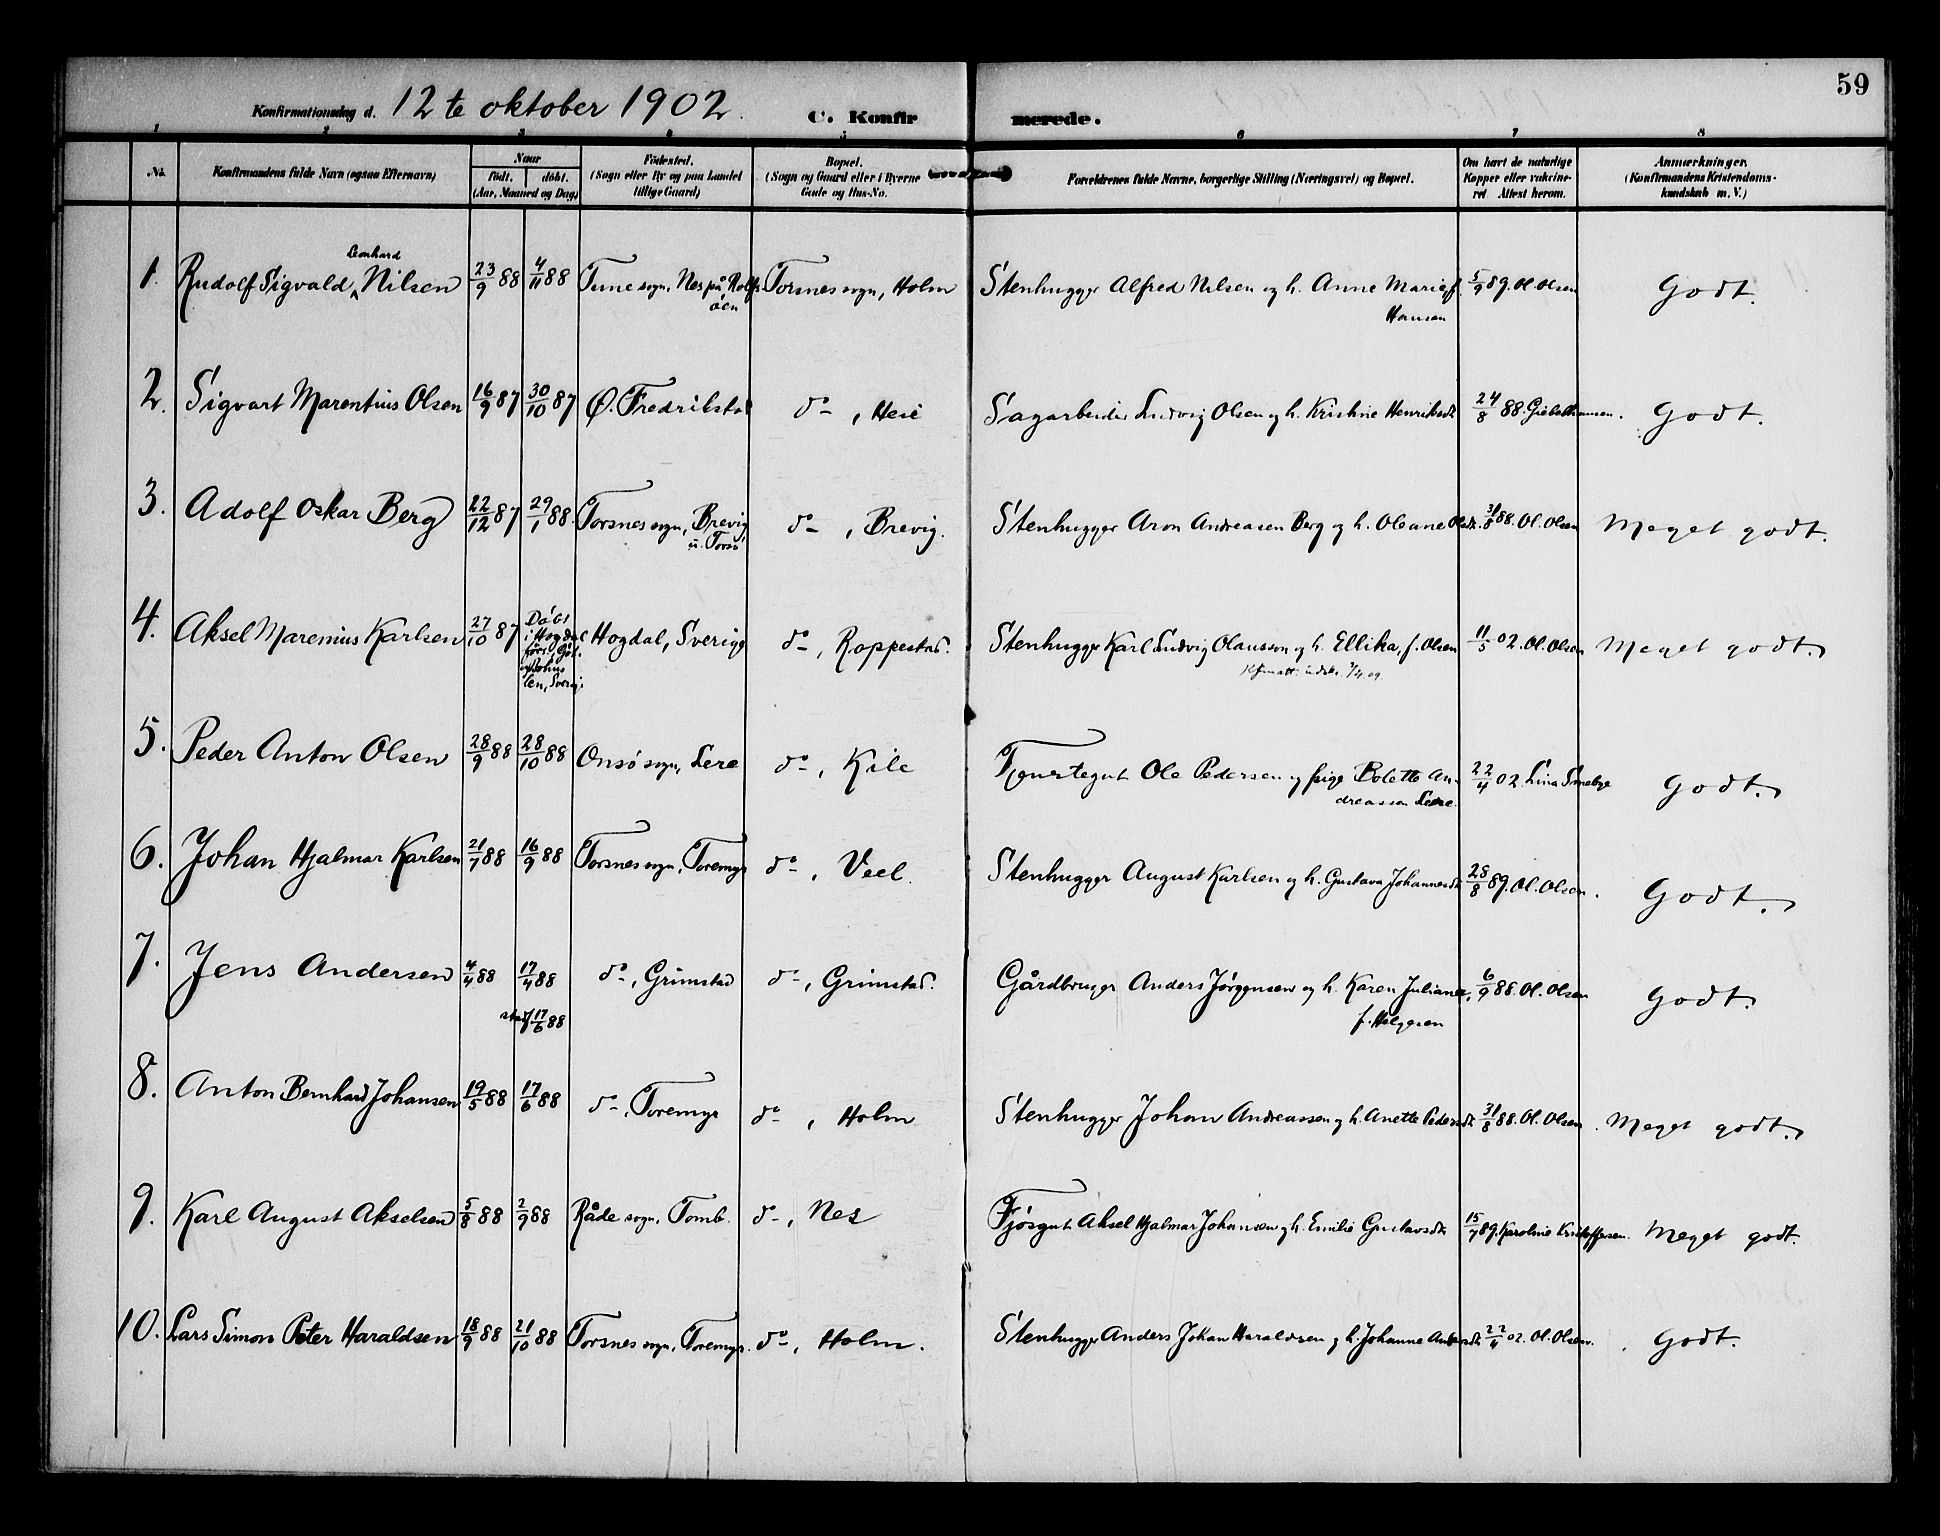 59
Konfirmationsdag d. 12te oktober 1902. C. Konfirmerede.
1 2 3 4 5 6 7 8
No. Konfirmandens fulde Navn (ogsaa Efternavn) Naar født. døbt. (Aar, Maaned og Dag) Fødested. (Sogn eller By og paa Landet tillige Gaard) Bopæl. (Sogn og Gaard eller i Byerne Gade og Hus-No. Forældrenes fulde Navne, borgerlige Stilling (Næringsvei) og Bopæl. Om havt de naturlige Kopper eller vaccineret Attest herom. Anmærkninger. (Konfirmandens Kristendomskundskab m. V.)
1. Rudolf Sigvald Leonhard Nilsen 23/9 88 4/11 88 Tune sogn, Nes på Rolfsöen Torsnes sogn, Holm Stenhugger Alfred Nilsen og h. Anne Marie f. Hansen 5/9 89. Ol. Olsen Godt.
2. Sigvart Marentius Olsen 16/9 87 30/10 87 Ø. Fredrikstad do , Heie Sagarbeider Ludvig Olsen og h. Kristine Henriksdt. 24/8 88. Godt.
3. Adolf Oskar Berg 22/12 87 29/1 88. Torsnes sogn, Brevig u. Torsn do , Brevig. Stenhugger Aron Andreasen Berg og h. Oleane Olsdt. 31/8 88. Ol. Olsen Meget godt.
4. Aksel Marenius Karlsen 27/10 87 Døbt i Hogdal förs. Göt. len, Sverig: Hogdal, Sverige do , Roppestad. Stenhugger Karl Ludvig Olausson og h. Ellika, f. Olsen 11/5 02. Ol. Olsen Meget godt.
5. Peder Anton Olsen 28/9 88 28/10 88 Onsø sogn, Lere do , Kile Tjenestegut Ole Pedersen og pige Bolette Andreassen Lere. 22/4 02. Lina Godt.
6. Johan Hjalmar Karlsen 21/7 88 16/9 88 Torsnes sogn, Toremyr do , Veel. Stenhugger August Karlsen og h. Gustava Johannesdt. 25/8 89. Ol. Olsen. Godt.
7. Jens Andersen 4/4 88 17/4 88 stadf. 17/6 88 do , Grimstad do , Grimstad. Gårdbruger Anders Jørgensen og h. Karen Juliane, f. Helgesen 6/9 88. Ol. Olsen Godt.
8. Anton Bernhard Johansen 19/5 88 17/6 88 do , Toremyr do , Holm Stenhugger Johan Andreassen og h. Anette Pedersdt. 31/8 88. Ol. Olsen. Meget godt.
9. Karl August Akselsen 5/8 88 2/9 88 Råde sogn, Tomb. do , Nes Fjøsgut Aksel Hjalmar Johansen og h. Emilie Gustavsdt. 15/7 89. Karoline Kristoffersen. Meget godt.
10. Lars Simon Peter Haraldsen 18/9 88 21/10 88 Torsnes sogn, Toremyr. do , Holm. Stenhugger Anders Johan Haraldsen og h. Johanne 22/4 02. Ol. Olsen. Godt.